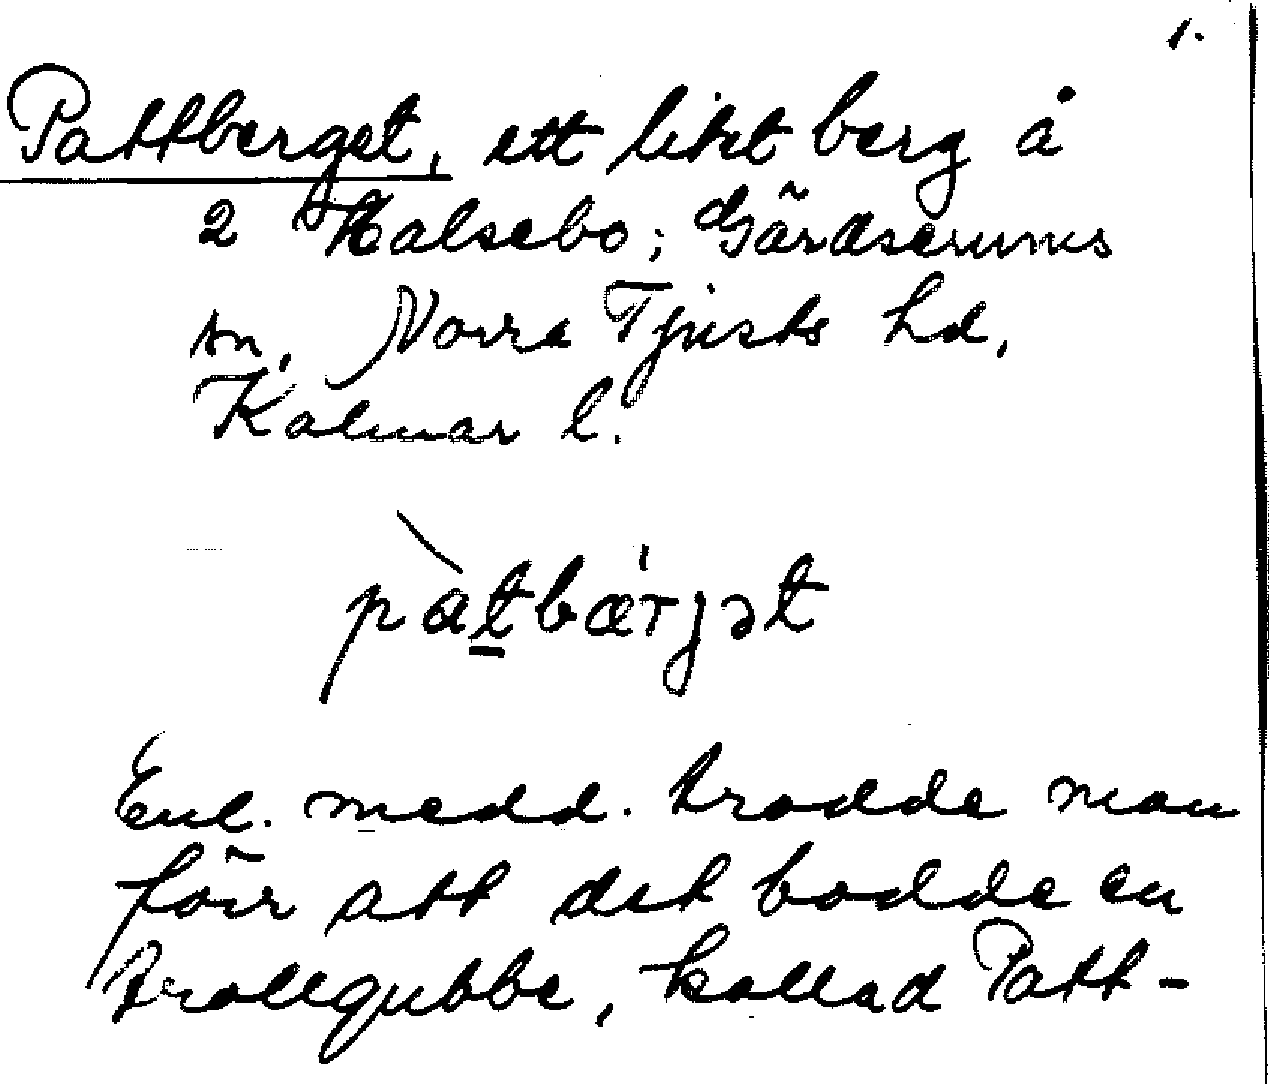 1.
Pattberget, ett litet berg å
2 Halsebo; Gärdserums
sn, Norra Tjusts hd,
Kalmar l.
pàtbær̍jət
Enl. medd. trodde man
förr att det bodde en
trollgubbe, kallad Patt-